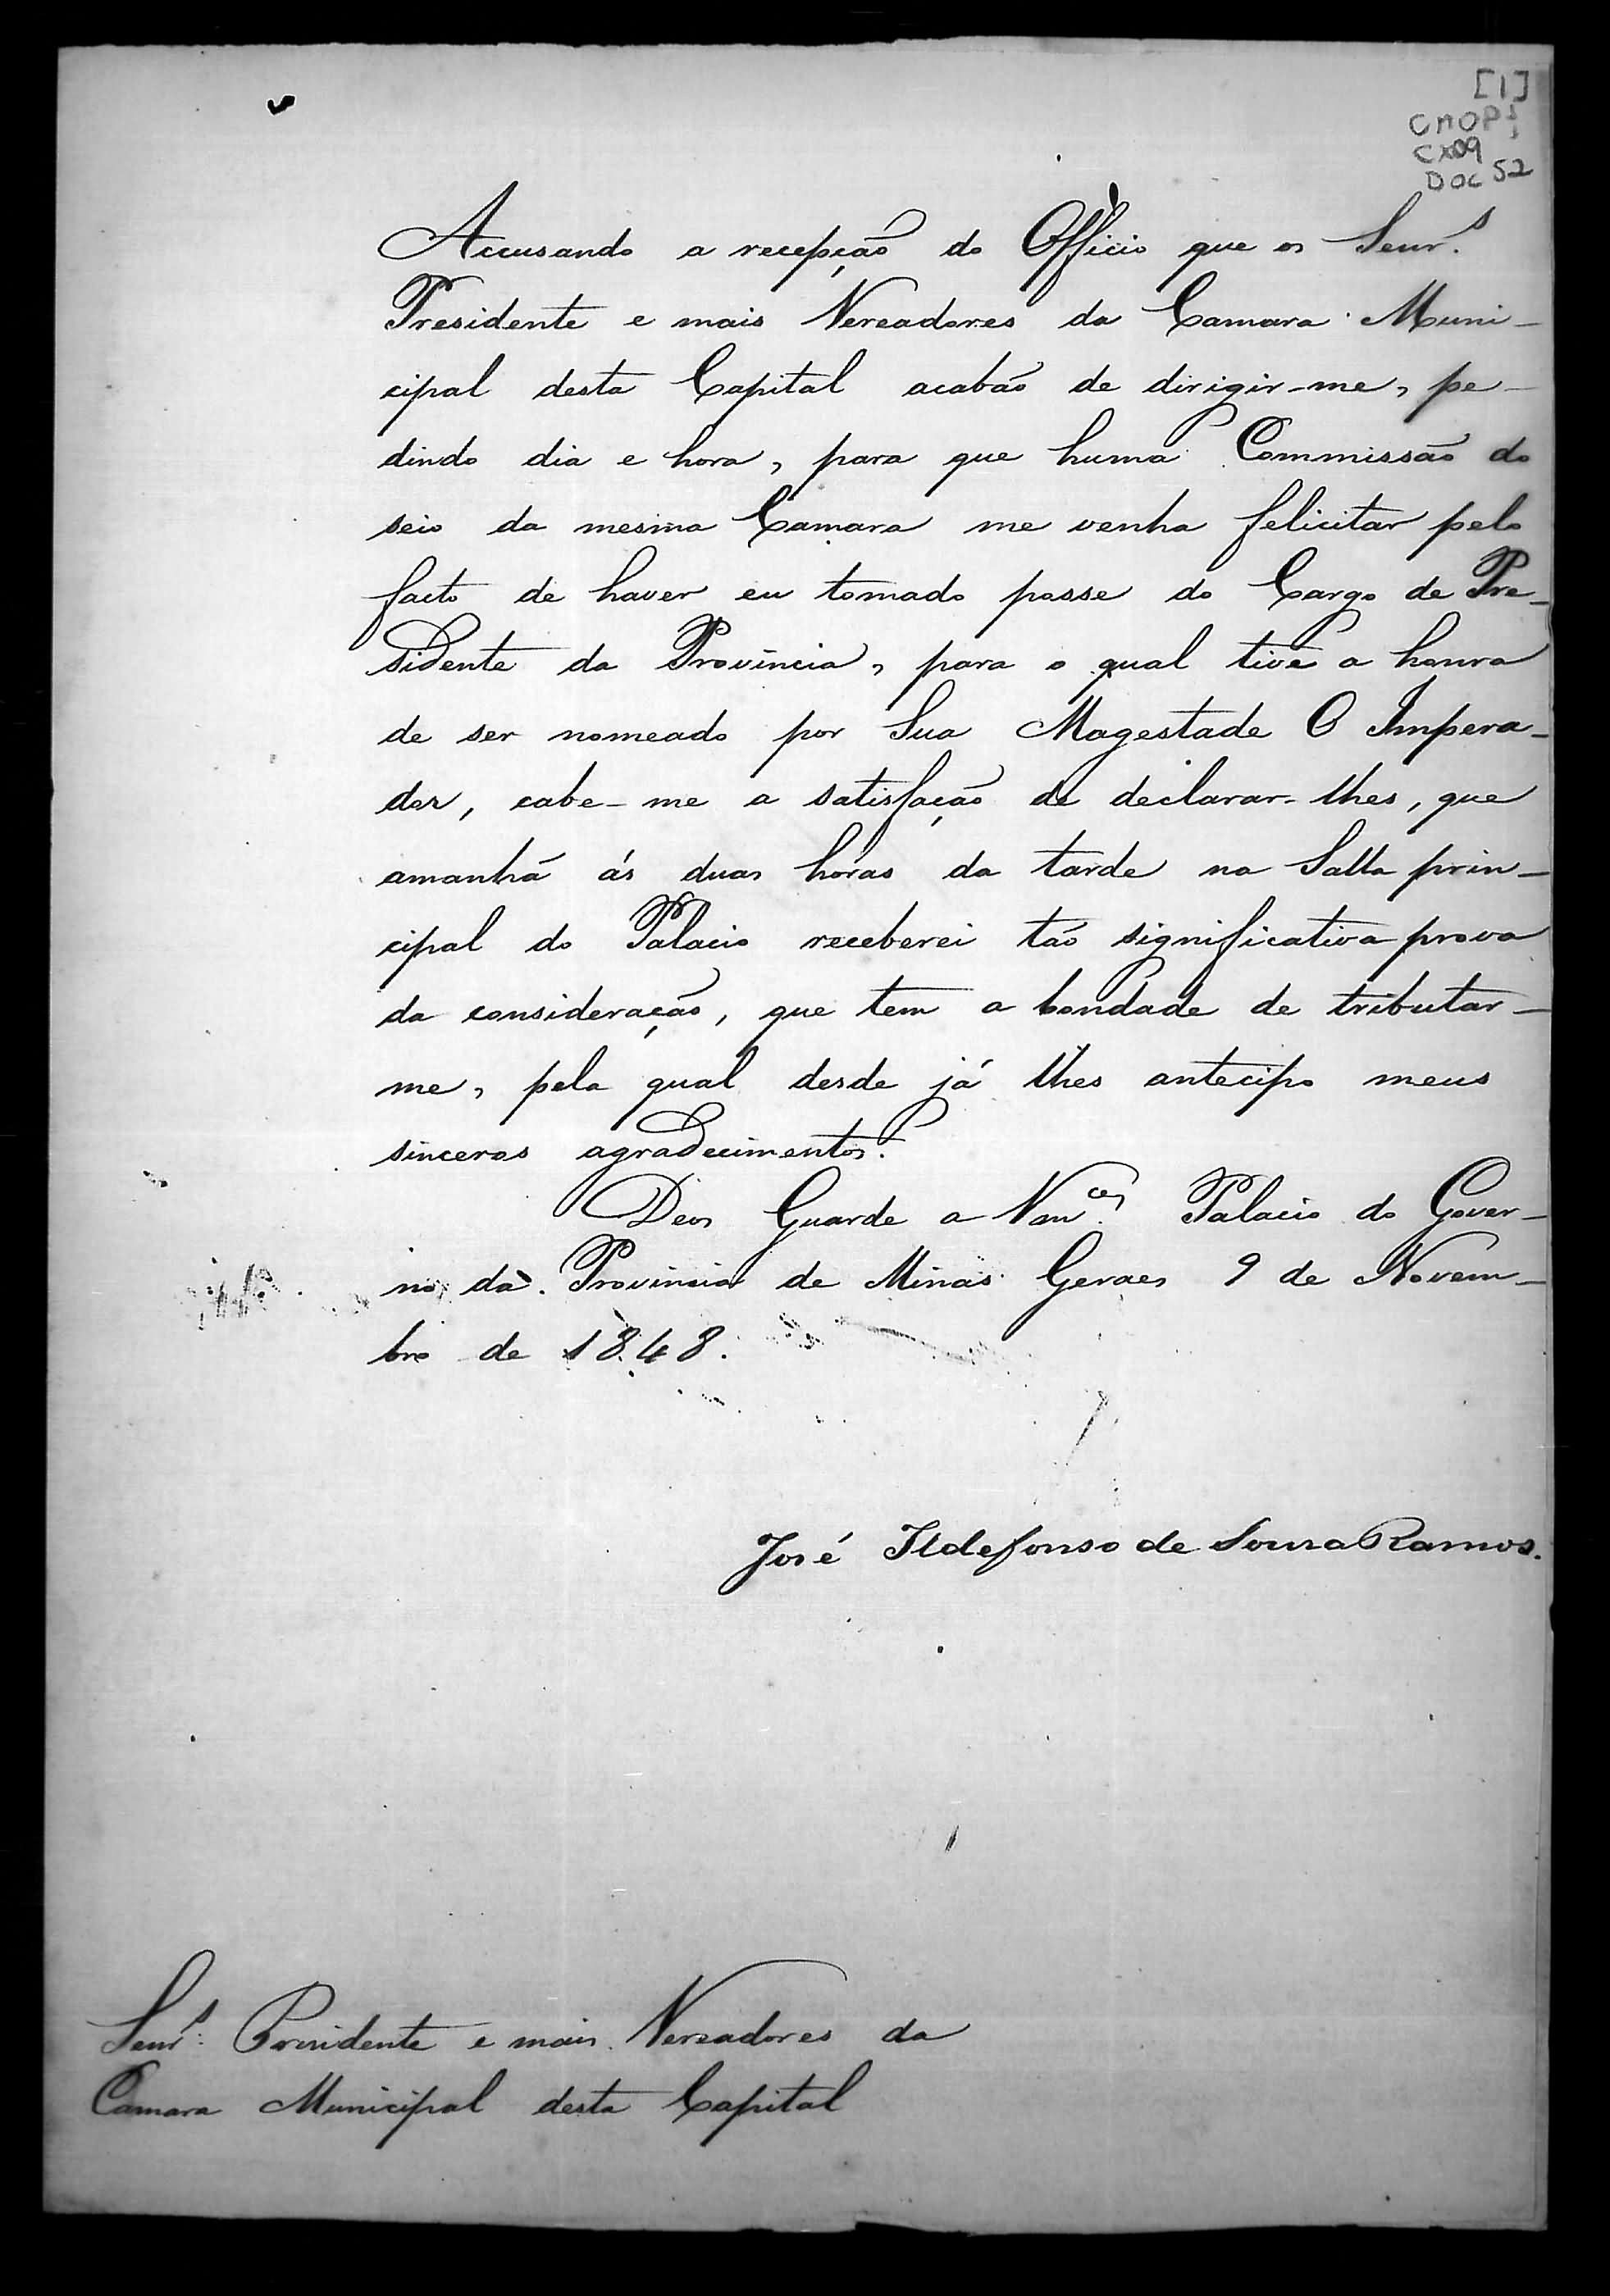 [1]
CMOP
CX09
DOC 52
Accusando a recepção do Officio que os Senr.s
Presidente e mais Vereadores da Camara Muni-
cipal desta Capital acabão de dirigir-me, pe-
dindo dia e hora, para que huma Commissão do
seio da mesma Camara me venha felicitar pelo
facto de haver eu tomado posse do Cargo de Pre-
sidente da Provincia, para o qual tive a honra
de ser nomeado por Sua Magestade O Impera-
dor, cabe-me a satisfação de declarar-lhes, que
amanhã ás duas horas da tarde na Salla prin-
cipal do Palacio receberei tão significativa prova
da consideração, que tem a bondade de tributar-
me, pela qual desde já lhes antecipo meus
sinceros agradecimentos.
Deos Guarde a Vm.ces Palacio do Gover-
no da Provincia de Minas Geraes 9 de Novem-
bro de 1848.
José Ildefonso de Sousa Ramos.
Senr.s Presidente e mais Vereadores da
Camara Municipal desta Capital